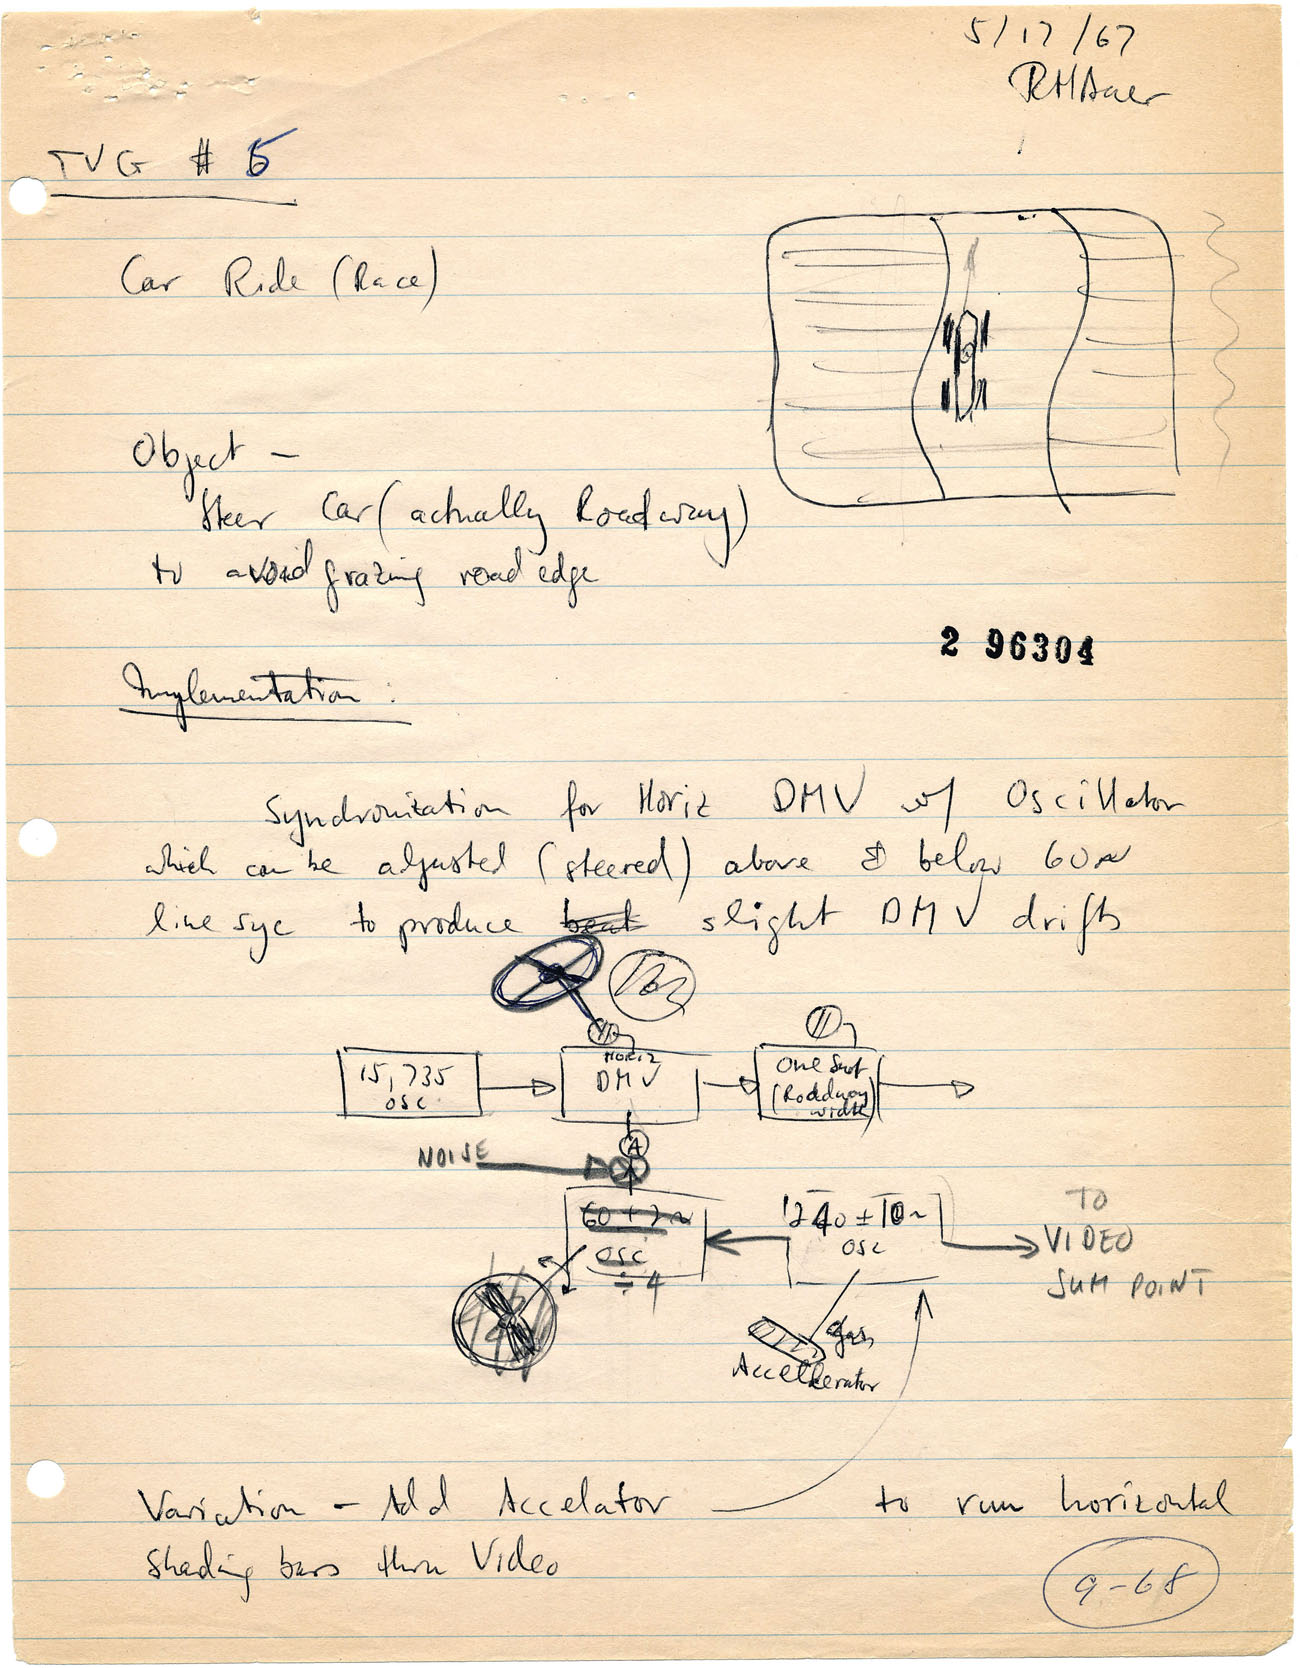 5/17/67
RHBaer
TVG # 5
Car Ride (Race)
Object -
Steer Car (actually Roadway)
to avoid grazing road edge
2 96304
Implementation :
Syndronization for Horiz DMV w/ Oscillator
which can be adjusted (steered) above & below 60~
line syc to produce beat slight DMV drifts
15,735
OSC
HORIZ
DMV
One Shot
(Roadway
width)
A
NOISE
60 ± 2~
OSC
÷ 4
240 ± 10~
OSC
TO
VIDEO
SUM POINT
gas
Accellerator
Variation - Add Accelator to run horizontal
shading bars thru Video
9-68